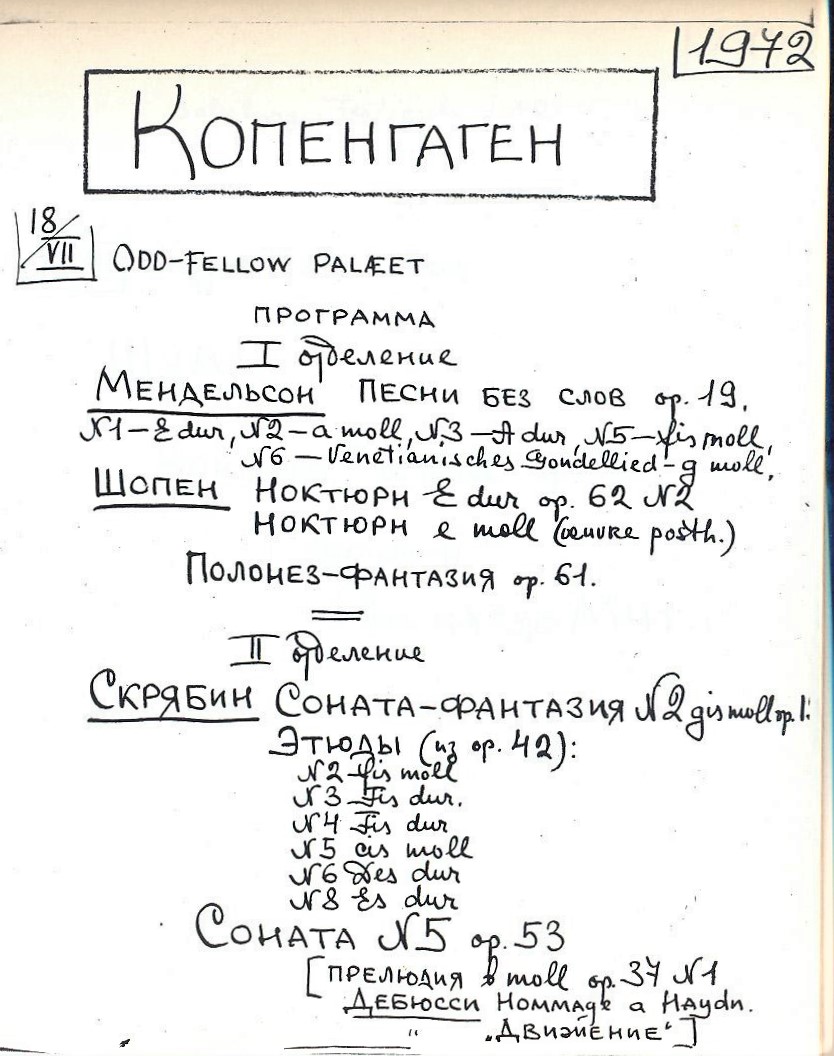 1972
КОПЕНГАГЕН
18/VII ODD-FELLOW PALÆET
ПРОГРАММА
I отделение
МЕНДЕЛЬСОН ПЕСНИ БЕЗ СЛОВ op. 19,
N1–E dur, N2–a moll, N3–A dur, N5–fis moll,
N6–Venetianisches Gondellied–g moll,
ШОПЕН НОКТЮРН E dur op. 62 N2
НОКТЮРН e moll (oeuvre posth.)
ПОЛОНЕЗ-ФАНТАЗИЯ op. 61.
II отделение
СКРЯБИН СОНАТА-ФАНТАЗИЯ N2 gis moll op.
ЭТЮДЫ (из op. 42):
N2–fis moll
N3–Fis dur.
N4 Fis dur
N5 cis moll
N6 Des dur
N8 Es dur
СОНАТА N5 op. 53
[ПРЕЛЮДИЯ b moll op. 37 N1
ДЕБЮССИ HOMMAGE a HAYDN.
" „ДВИЖЕНИЕ"]